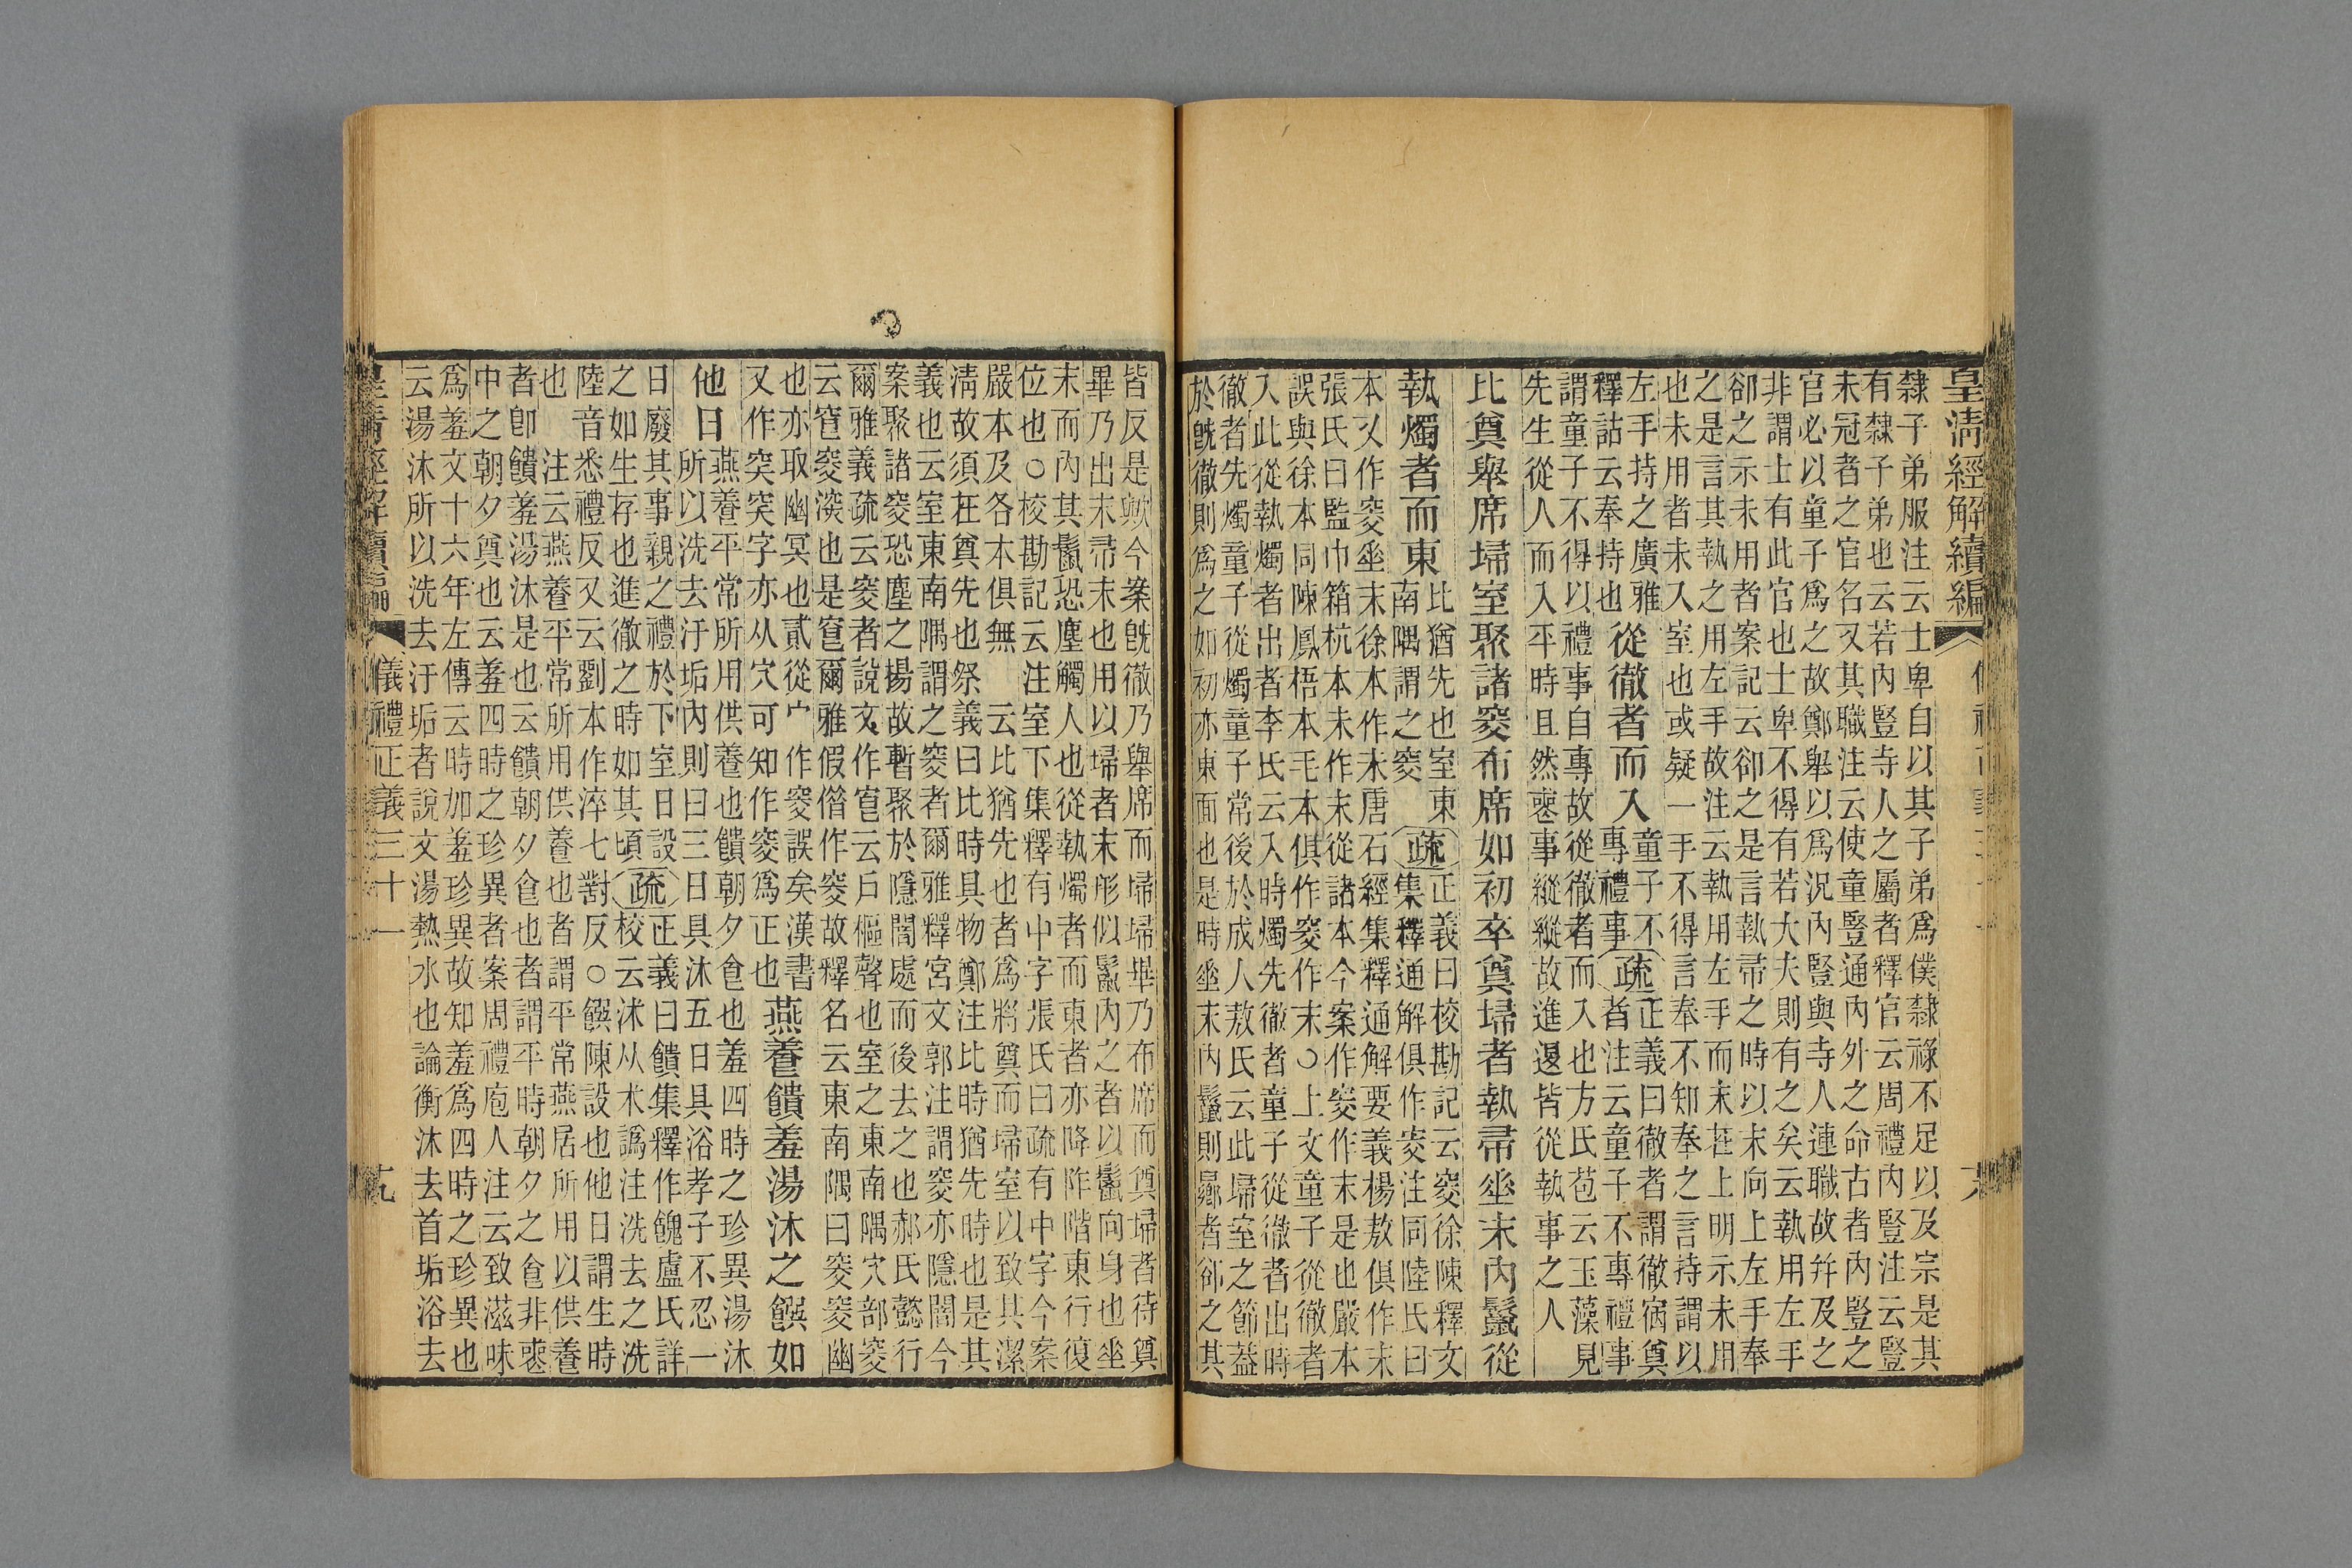 皇清經解續編
隸子弟服注云士卑自以其子弟爲僕隸祿不足以及宗是其
有隸子弟也云若內豎寺人之屬者釋官云周禮內豎注云豎
未冠者之官名又其職注云使童豎通內外之命古者內豎之
官必以童子爲之故鄭舉以爲況內豎與寺人連職故幷及之
非謂士有此官也士卑不得有若大夫則有之矣云執用左手
卻之示未用者案記云卻之是言執帚之時以末向上左手奉
之是言其執之用左手故注云執用左手而末在上明示未用
也未用者未入室也或疑一手不得言奉不知奉之言持謂以
左手持之廣雅
釋詁云奉持也
從徹者而入
童子不
專禮事
疏
正義曰徹者謂徹宿奠
者注云童子不專禮事
謂童子不得以禮事自專故從徹者而入也方氏苞云玉藻見
先生從人而入平時且然喪事縱縱故進退皆從執事之人
比奠舉席埽室聚諸窔布席如初卒奠埽者執帚垂末內鬣從
執燭者而東
比猶先也室東
南隅謂之窔
疏
正義曰校勘記云窔徐陳釋文
集釋通解俱作穾注同陸氏曰
本又作窔垂末徐本作末唐石經集釋通解要義楊敖俱作末
張氏曰監巾箱杭本未作末從諸本今案作窔作末是也嚴本
誤與徐本同陳鳳梧本毛本俱作窔作末○上文童子從徹者
入此從執燭者出者李氏云入時燭先徹者童子從徹者出時
徹者先燭童子從燭童子常後於成人敖氏云此埽室之節蓋
於既徹則爲之如初亦東面也是時垂末內鬣則者卻之其
皆反是歟今案既徹乃舉席而埽埽畢乃布席而奠埽者待奠
畢乃出末帚末也用以埽者末形似鬣內之者以鬣向身也垂
末而內其鬣恐塵觸人也從執燭者而東者亦降阼階東行復
位也○校勘記云注室下集釋有中字張氏曰疏有中字今案
嚴本及各本俱無 云比猶先也者爲將奠而埽室以致其潔
清故須在奠先也祭義曰比時具物鄭注比時猶先時也是其
義也云室東南隅謂之窔者爾雅釋宮文郭注謂窔亦隱闇今
案聚諸窔恐塵之揚故暫聚於隱闇處而後去之也郝氏懿行
爾雅義疏云窔者說文作窅云戶樞聲也室之東南隅穴部窔
云窅窔深也是窅爾雅假借作窔故釋名云東南隅曰窔窔幽
也亦取幽冥也貳從宀作窔誤矣漢書
又作突突字亦从穴可知作窔爲正也
燕養饋羞湯沐之饌如
他日
燕養平常所用供養也饋朝夕食也羞四時之珍異湯沐
所以洗去汙垢內則曰三日具沐五日具浴孝子不忍一
日廢其事親之禮於下室日設
之如生存也進徹之時如其頃
疏
正義曰饋集釋作餽盧氏詳
校云沭从朮譌注洗去之洗
陸音悉禮反又云劉本作淬七對反○饌陳設也他日謂生時
也 注云燕養平常所用供養也者謂平常燕居所用以供養
者卽饋羞湯沐是也云饋朝夕食也者謂平時朝夕之食非喪
中之朝夕奠也云羞四時之珍異者案周禮庖人注云致滋味
爲羞文十六年左傳云時加羞珍異故知羞爲四時之珍異也
云湯沐所以洗去汙垢者說文湯熱水也論衡沐去首垢浴去
皇清經解續編
儀禮正義三十一